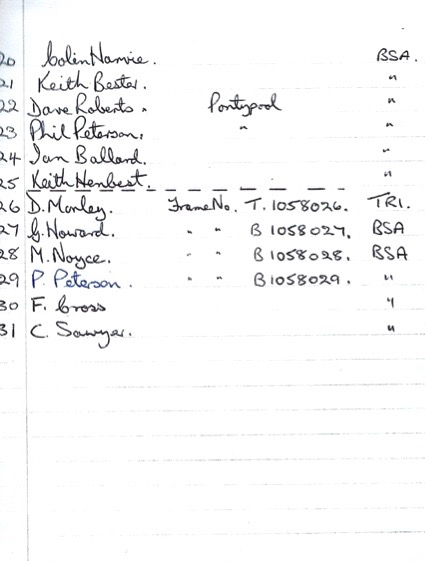 20 Colin Narvie. BSA.
21 Keith Bester. "
22 Dave Roberts. Pontypool "
23 Phil Peterson. " "
24 Ian Ballard. "
25 Keith Henbest. "
26 D. Manley. Frame No. T. 1058026. TRI.
27 G. Howard. " " B 1058027. BSA
28 M. Noyce. " " B 1058028. BSA
29 P. Peterson. " " B 1058029. "
30 F. Cross "
31 C. Sawyer. "